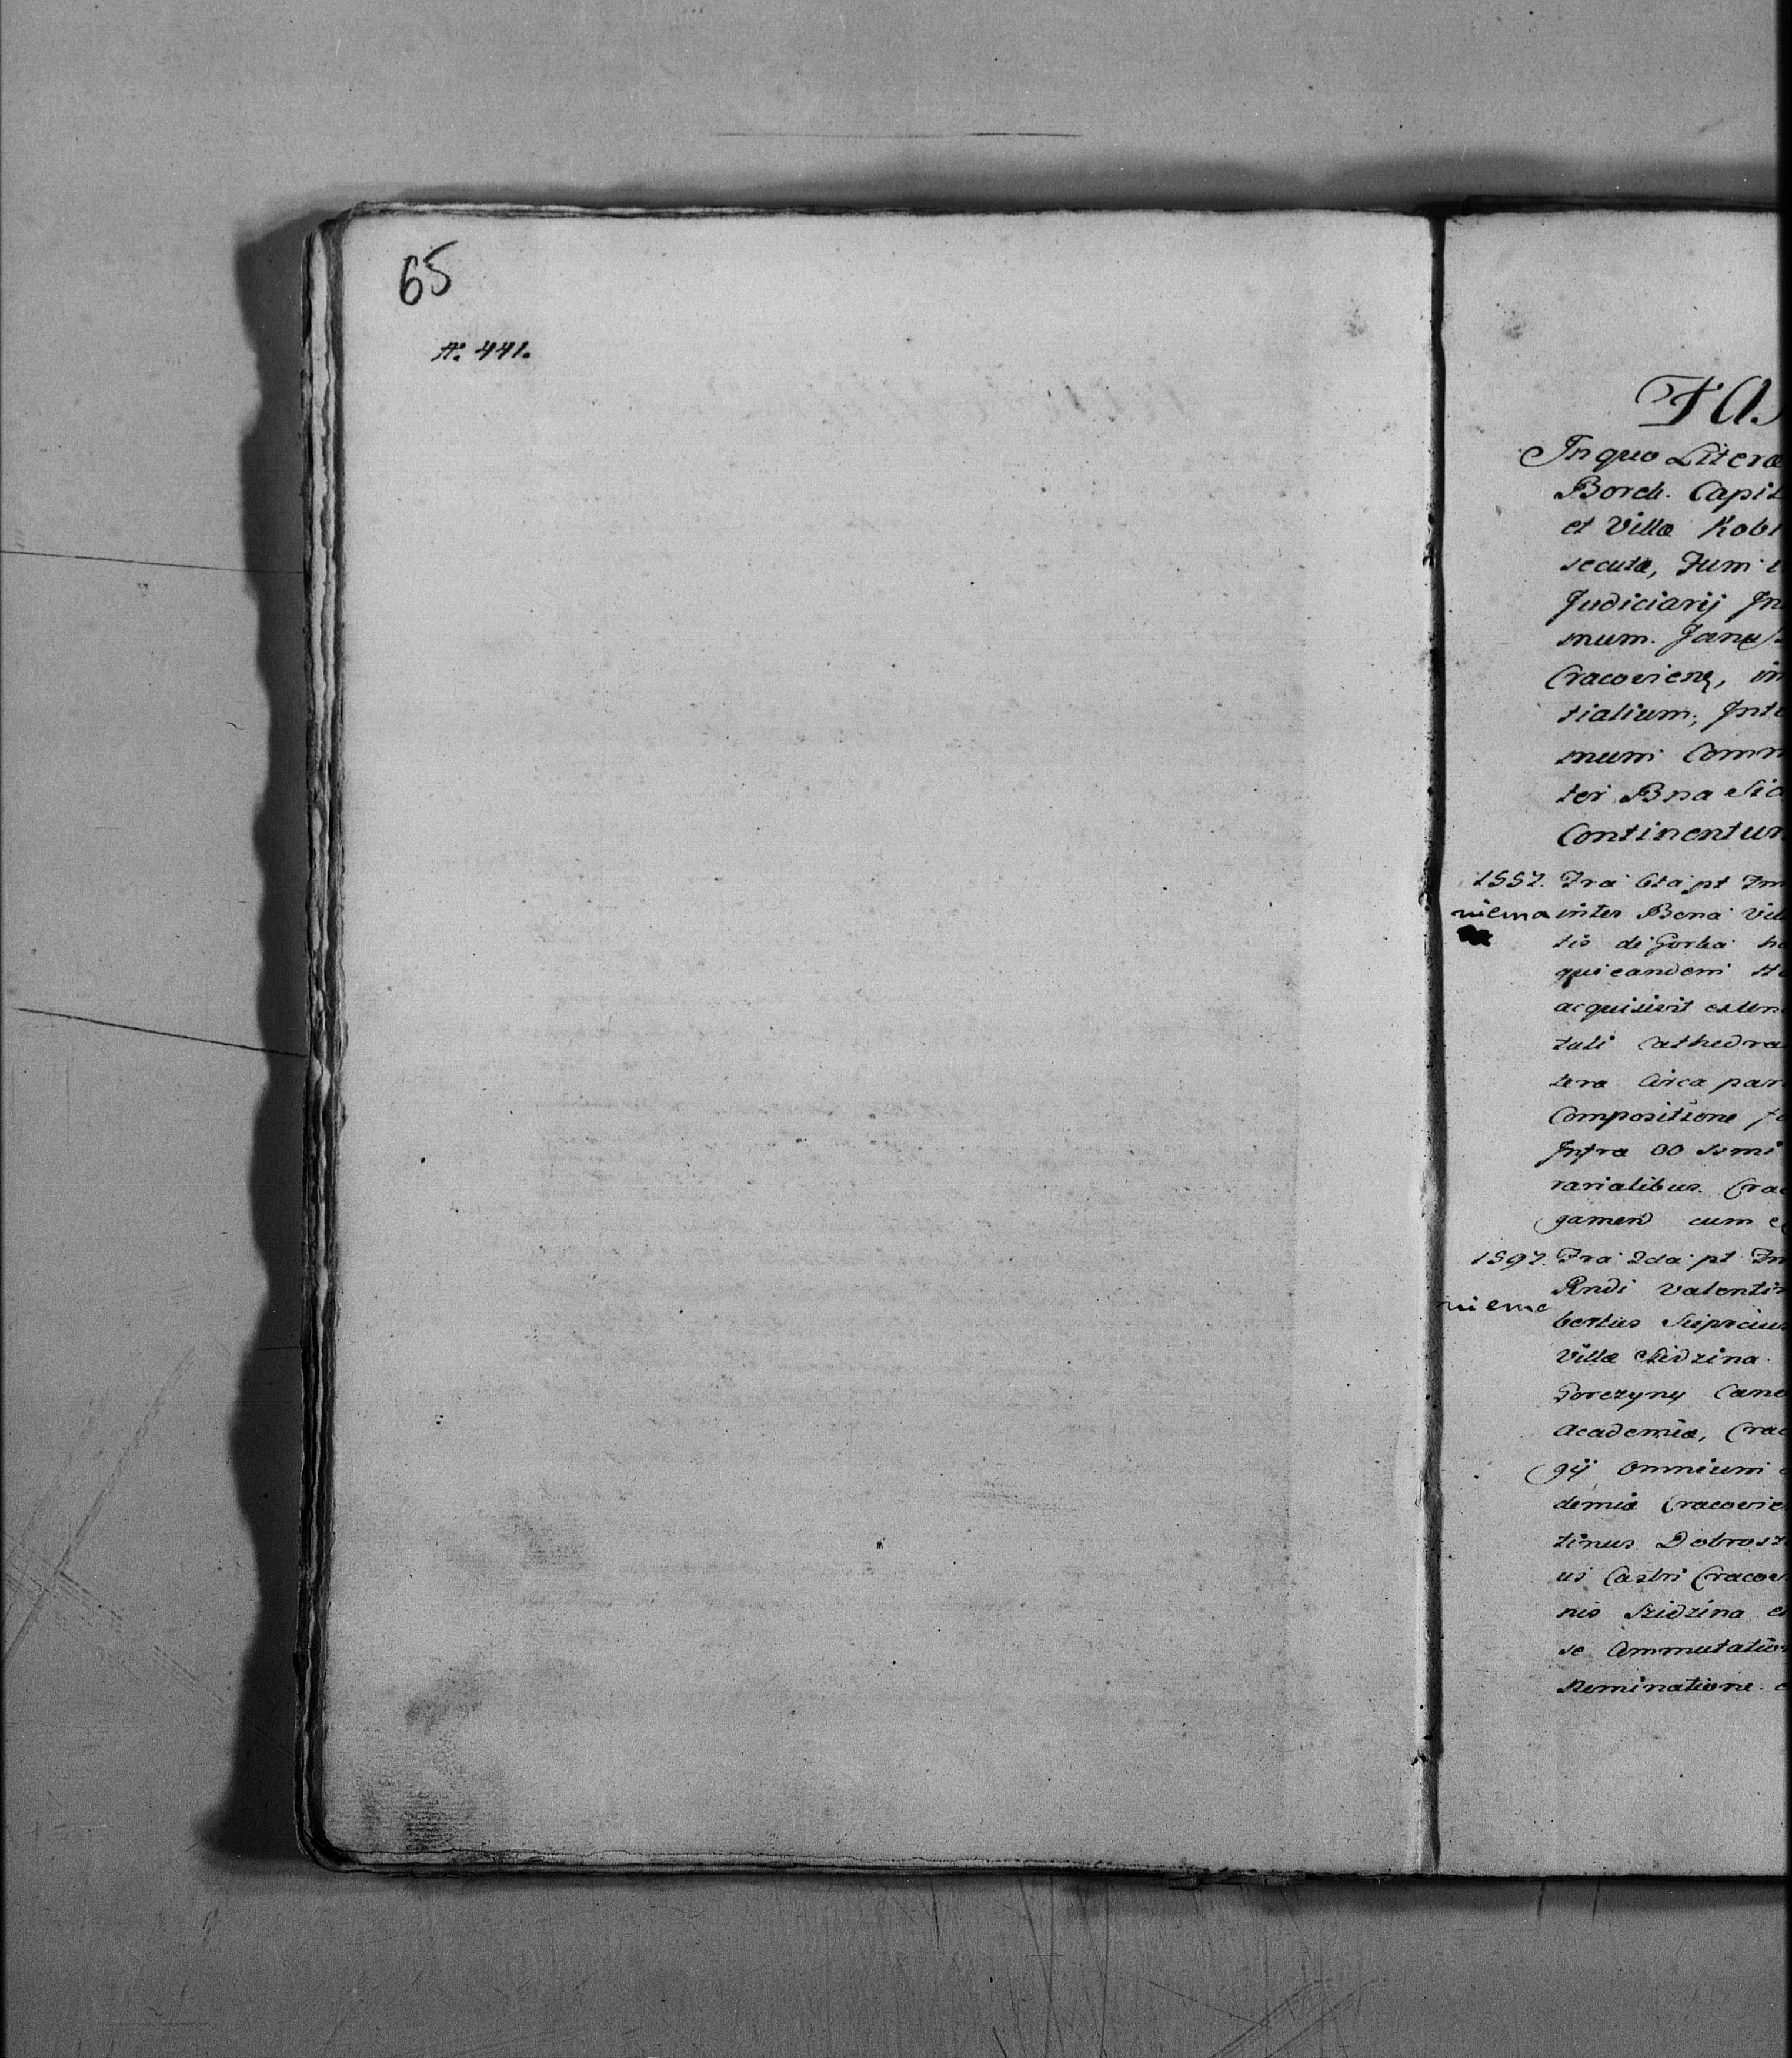 65
N. 441.
FAS
In quo Literæ
Borek. Capit
et Villæ Kobi
secutæ, Tum
Judiciarij In
mum. Janus
Cracovien, in
tialium; Inte
mum Comm
ter Bna Sid
Continentur
1557. Fra 6ta pt Im
niema inter Bona Vill
tis de Gorka
qui eandem
acquisivit exten
tuli Cathedra
tera Circa par
Compositione
Infra 00
rarialibus. Cra
gamen cum
1597. Fra 2da pt In
Rndi Valentin
niema
bertus
Villæ Sidzina
Gorczyny Cano
Academiæ, Crac
gij omnium
demiæ Cracovie
tinus Dobrosz
us Castri Cracov
nis Szidzina et
se Commutatio
Reminatione